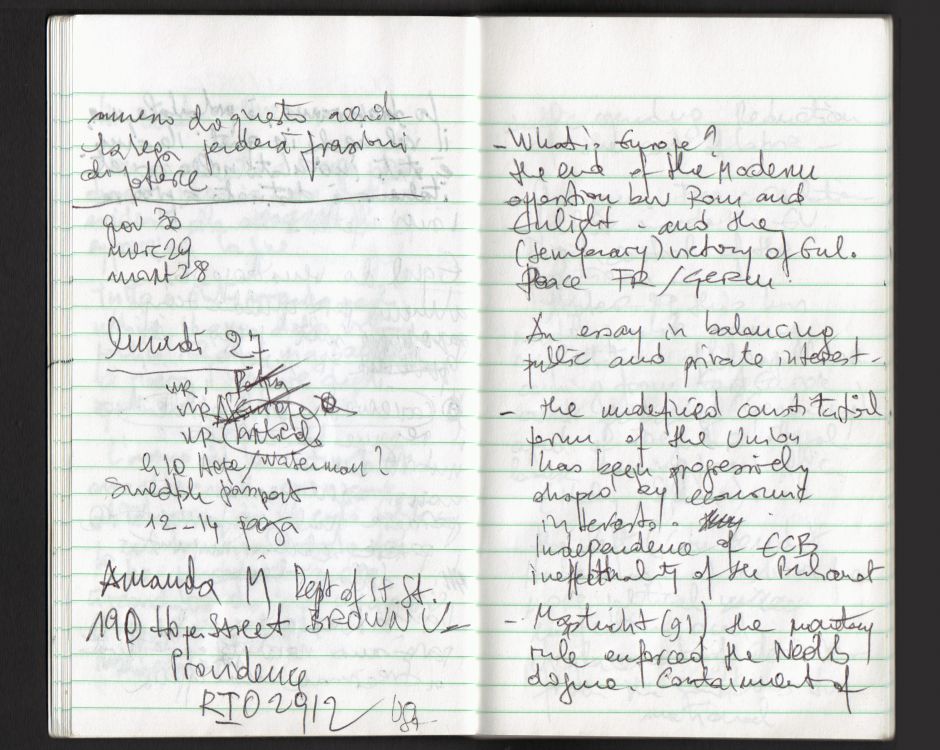 nnneno do questo accordo
la lega perderà frazioni
di potere
gov 30
merc 29
mart 28
lunedì 27
WR.
WR
WR Article
h 10 Hope/Waterman?
Swedish passport
12-14 yoga
Amanda M Dept of It. St.
190 Hope Street BROWN U
Providence
RI 02912 USA
- What is Europe?
the end of the Modern
opposition bw Rom and
Enlight. - and the
(temporary) victory of Enl.
Peace FR/GERM.
An essay in balancing
public and private interest-
- the undefined constitut'l
form of the Union
has been progressively
shaped by economic
interests.
Independence of ECB
ineffectuality of the Parliament
- Mastricht (91) the monetary
rule enforced the Neolib
dogma. Containment of